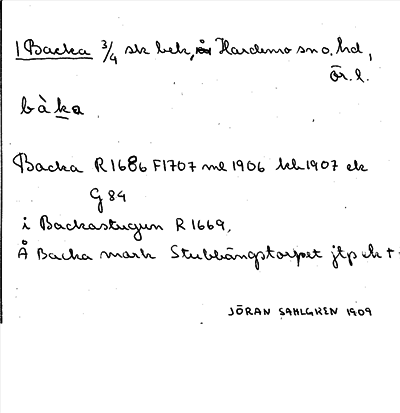 1 Backa 3/4 sk bek, Hardemo sn o. hd,
Ör. l.
bàka
Backa R1686 F1707 ml 1906 kk 1907 ek
G 84
i Backastugun R 1669,
Å Backa mark Stubbängstorpet jtp ek +
JÖRAN SAHLGREN 1909